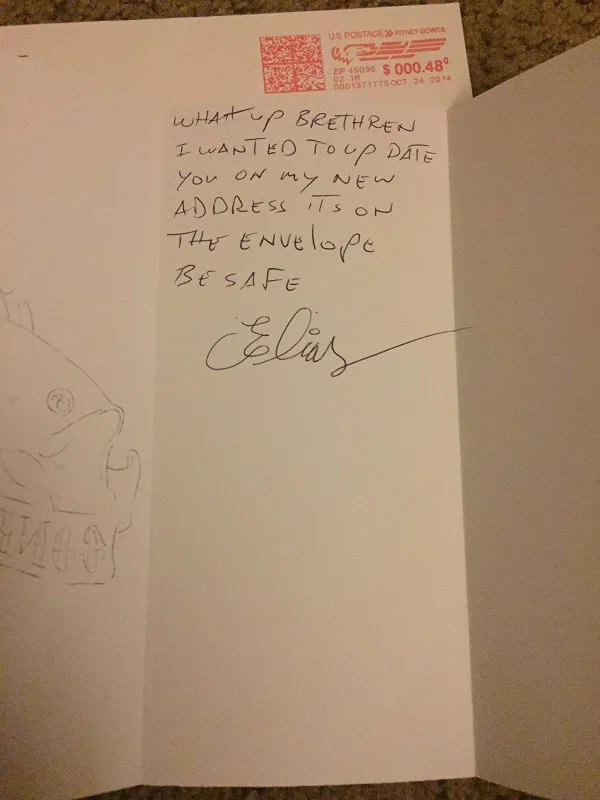 U.S. POSTAGE >> PITNEY BOWES
ZIP 49036 $ 000.48⁰
02 1W
0001371775 OCT 24 2014
WHAT UP BRETHREN
I WANTED TO UP DATE
YOU ON MY NEW
ADDRESS ITS ON
THE ENVElOPE
BE SAFE
Elias